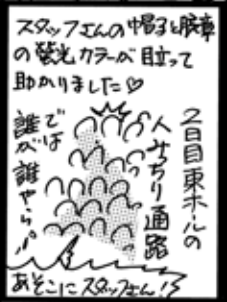 スタッフさんの帽子と腕章
の蛍光カラーが目立って
助かりました♡
2日目東ホールの
人みっちり通路
では
誰が誰やら
あそこにスタッフさん!